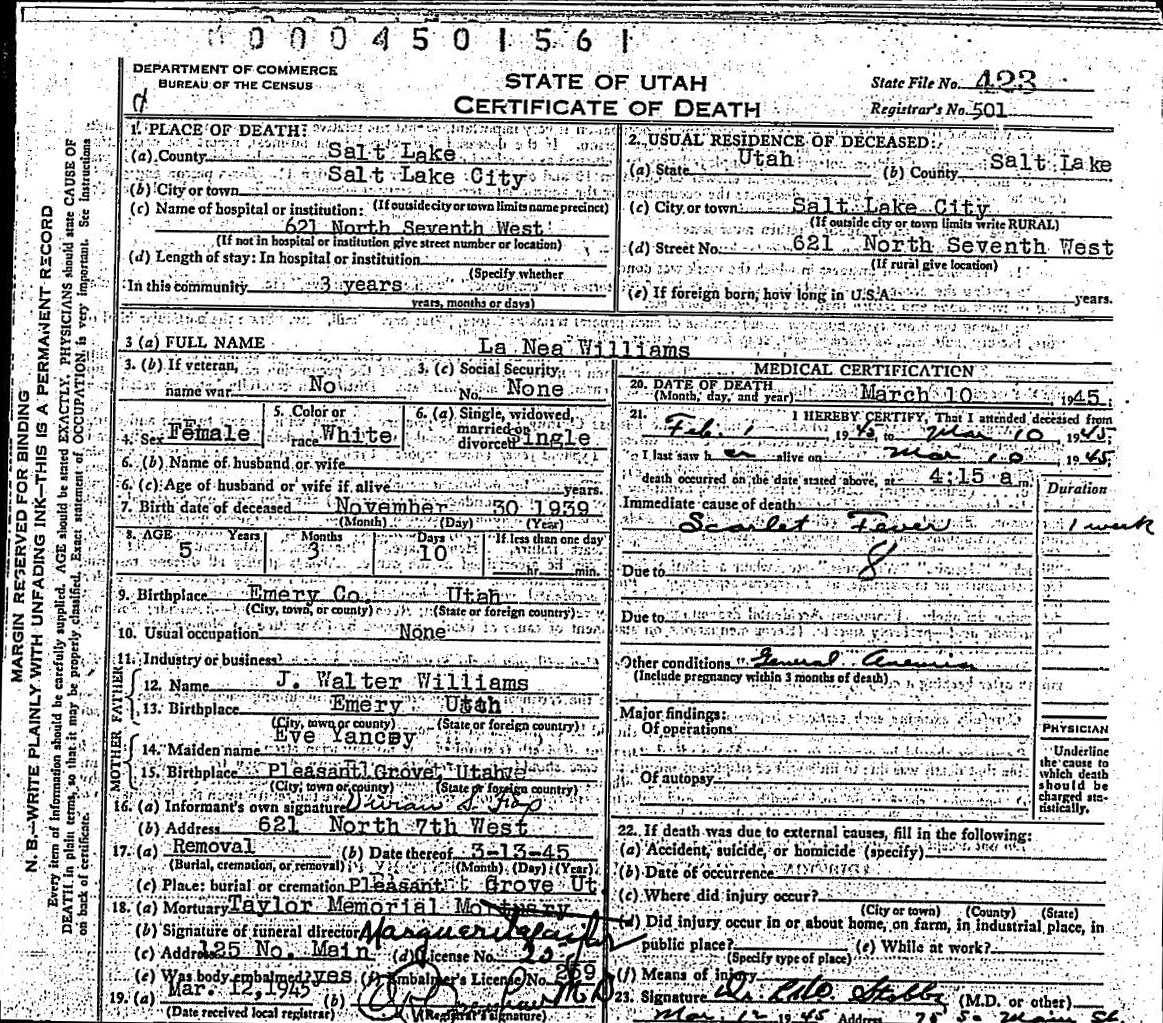 0 0 0 4 5 0 1 5 6 1
DEPARTMENT OF COMMERCE
BUREAU OF THE CENSUS
STATE OF UTAH
CERTIFICATE OF DEATH
State File No. 423
Registrar's No. 501
MARGIN RESERVED FOR BINDING
N. B.—WRITE PLAINLY WITH UNFADING INK—THIS IS A PERMANENT RECORD
Every item of information should be carefully supplied. AGE should be stated EXACTLY. PHYSICIANS should state CAUSE OF
DEATH in plain terms, so that it may be properly classified. Exact statement of OCCUPATION is very important. See Instructions
on back of certificate.
1. PLACE OF DEATH:
(a) County Salt Lake
(b) City or town Salt Lake City
(If outside city or town limits name precinct)
(c) Name of hospital or institution:
621 North Seventh West
(If not in hospital or institution give street number or location)
(d) Length of stay: In hospital or institution
(Specify whether
In this community 3 years
years, months or days)
2. USUAL RESIDENCE OF DECEASED:
(a) State Utah (b) County Salt Lake
(c) City or town Salt Lake City
(If outside city or town limits write RURAL)
(d) Street No. 621 North Seventh West
(If rural give location)
(e) If foreign born, how long in U.S.A. years.
3 (a) FULL NAME La Nea Williams
3. (b) If veteran,
name war No
3. (c) Social Security
No. None
4. Sex Female
5. Color or
race White
6. (a) Single, widowed,
married or
divorced
6. (b) Name of husband or wife
6. (c) Age of husband or wife if alive years.
7. Birth date of deceased November 30 1939
(Month) (Day) (Year)
8. AGE Years Months Days If less than one day
5 3 10
hr. min.
9. Birthplace Emery Co. Utah
(City, town, or county) (State or foreign country)
10. Usual occupation None
11. Industry or business
FATHER
12. Name J. Walter Williams
13. Birthplace Emery Utah
(City, town or county) (State or foreign country)
MOTHER
14. Maiden name Eve Yancey
15. Birthplace Pleasant Grove, Utah
(City, town or county) (State or foreign country)
16. (a) Informant's own signature
(b) Address 621 North 7th West
17. (a) Removal (b) Date thereof 3-13-45
(Burial, cremation, or removal) (Month) (Day) (Year)
(c) Place: burial or cremation Pleasant Grove Ut.
18. (a) Mortuary Taylor Memorial Mortuary
(b) Signature of funeral director Marguerite Taylor
(c) Address 125 No. Main (d) License No.
(e) Was body embalmed? yes (f) Embalmer's License No. 269
19. (a) Mar. 12, 1945 (b) M D
(Date received local registrar) (Registrar's signature)
MEDICAL CERTIFICATION
20. DATE OF DEATH
(Month, day, and year) March 10 1945
21. I HEREBY CERTIFY, That I attended deceased from
Feb. 1, 1945, to Mar 10, 1945;
I last saw her alive on Mar 10 1945;
death occurred on the date stated above, at 4:15 a m.
Duration
Immediate cause of death
Scarlet Fever 1 week
8
Due to
Due to
Other conditions General Anemia
(Include pregnancy within 3 months of death)
Major findings:
Of operations
Of autopsy
PHYSICIAN
Underline
the cause to
which death
should be
charged sta-
tistically.
22. If death was due to external causes, fill in the following:
(a) Accident, suicide, or homicide (specify)
(b) Date of occurrence
(c) Where did injury occur?
(City or town) (County) (State)
(d) Did injury occur in or about home, on farm, in industrial place, in
public place? (e) While at work?
(Specify type of place)
(f) Means of injury
23. Signature Dr. (M.D. or other)
Mar 12 1945 Address 75 So Main St.